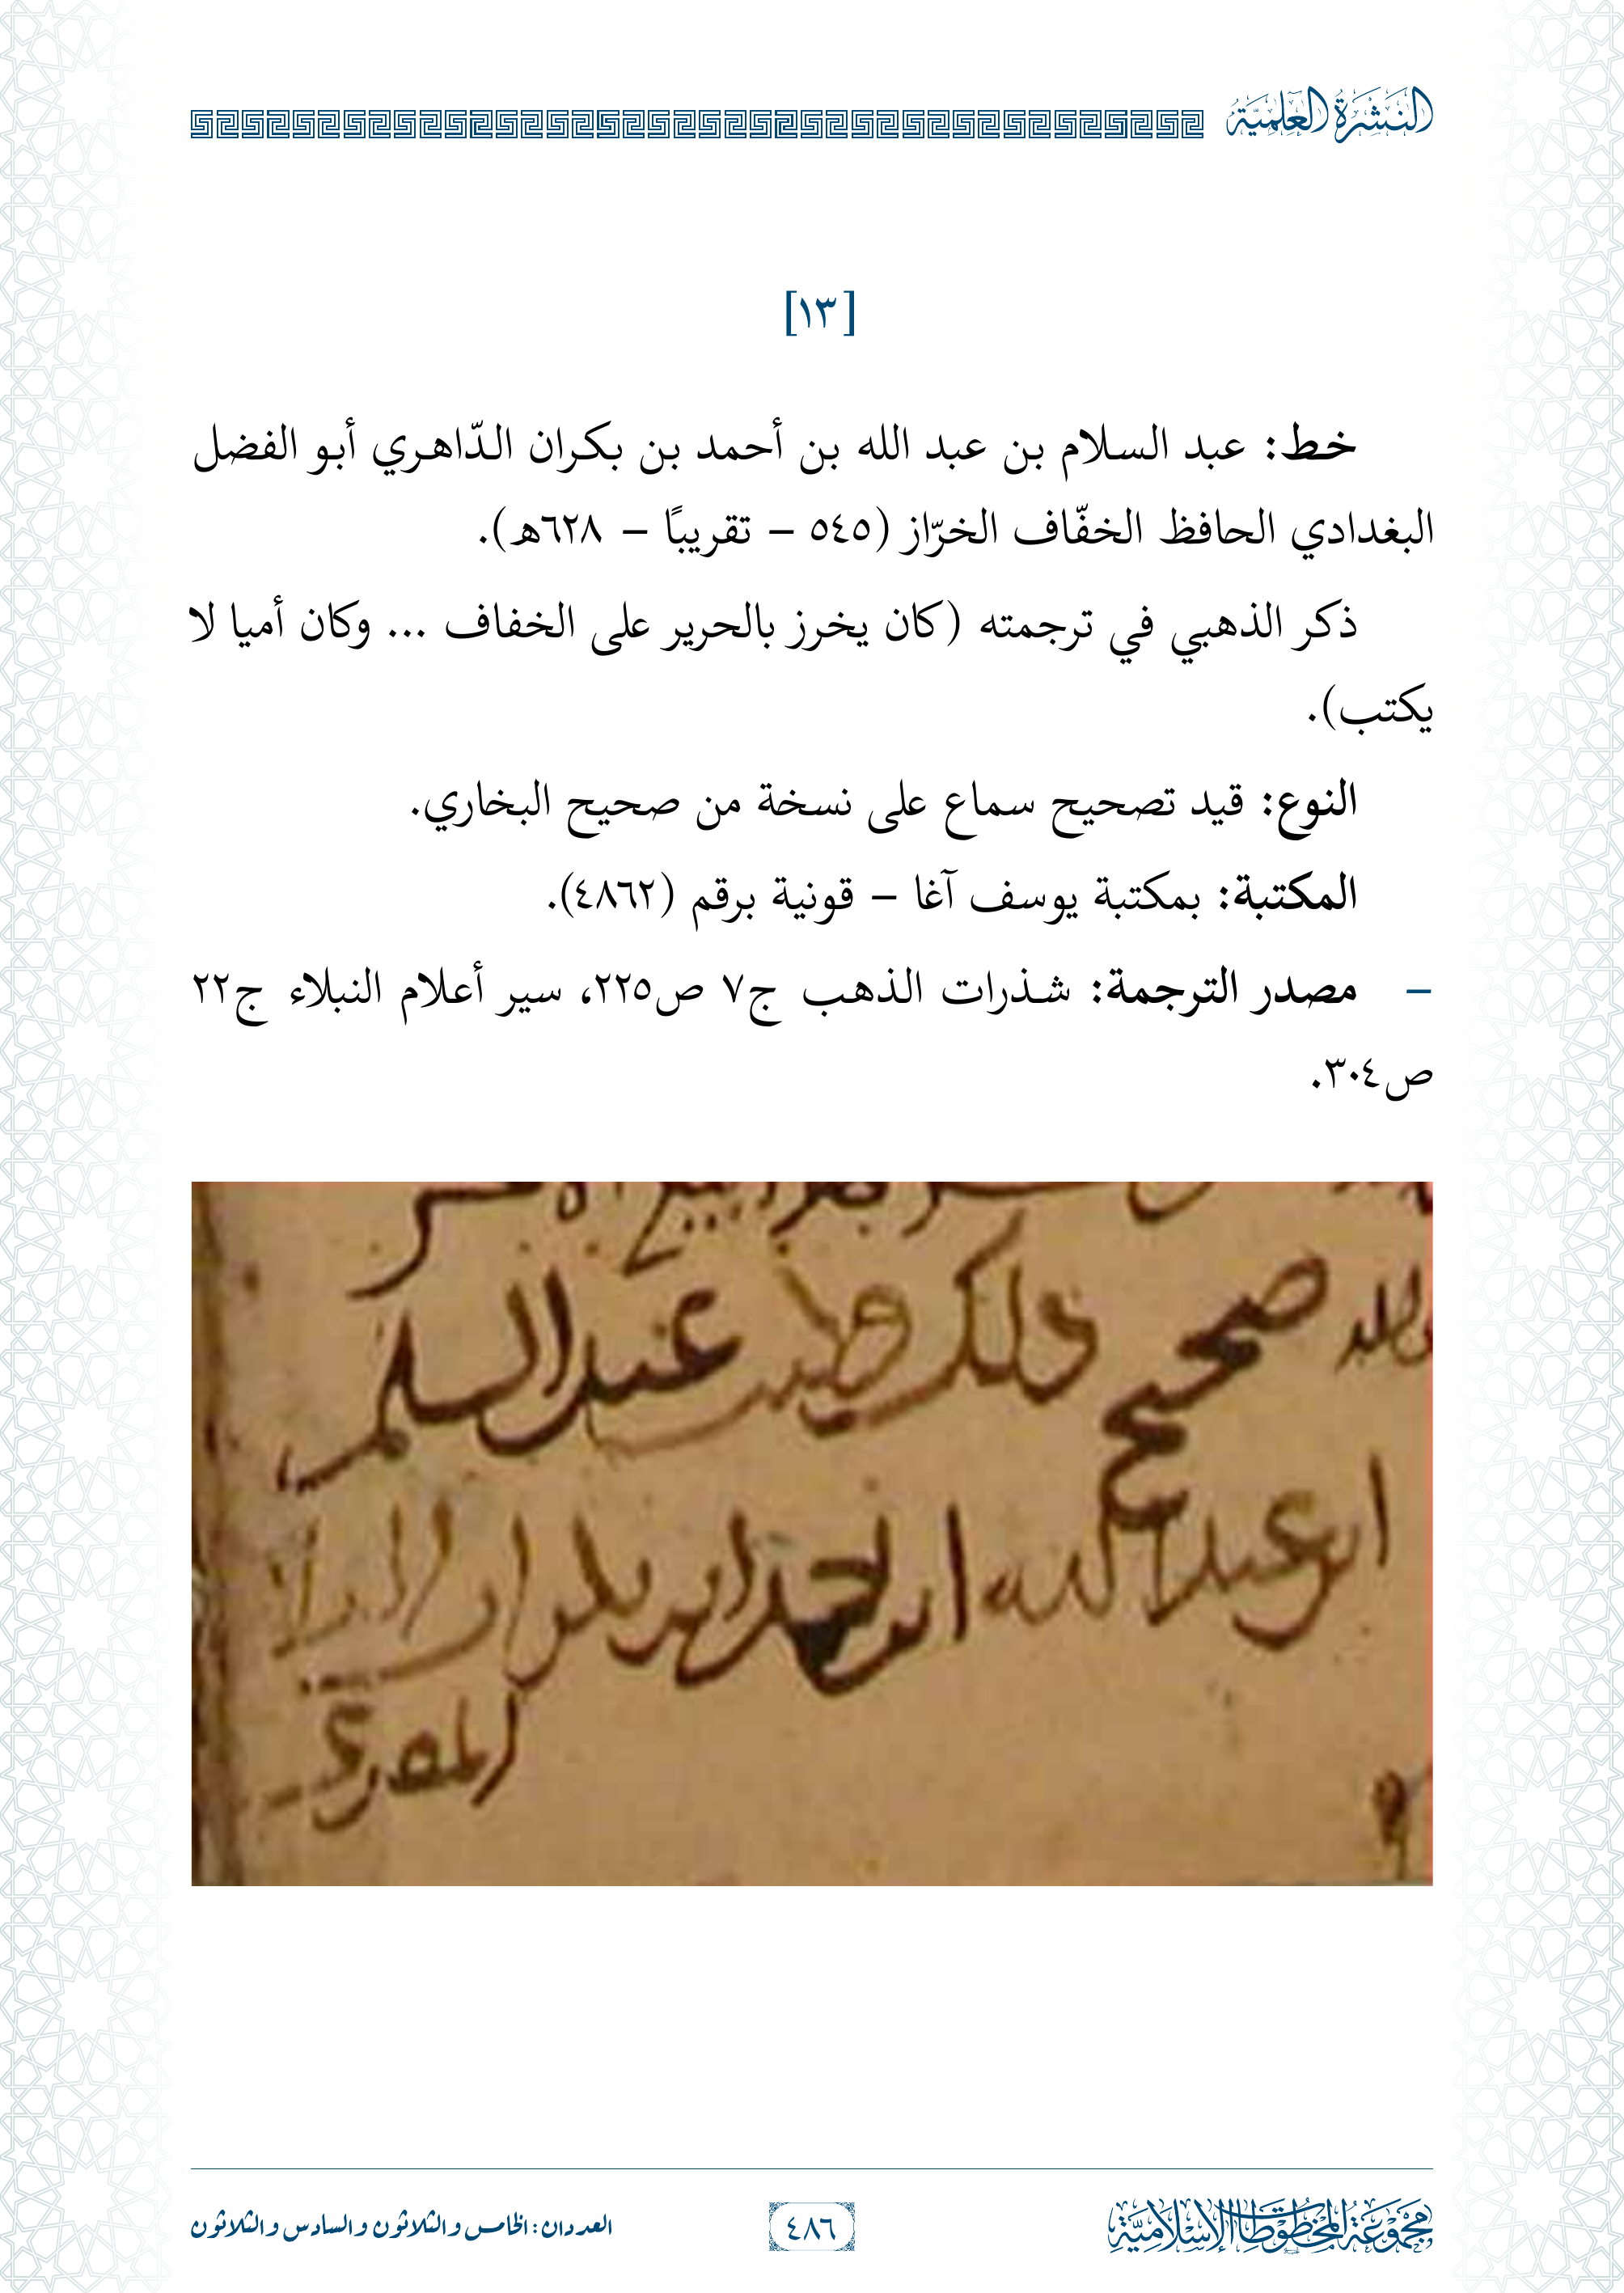 النشرة العلمية
[١٣]
خط: عبد السلام بن عبد الله بن أحمد بن بكران الدّاهري أبو الفضل
البغدادي الحافظ الخفّاف الخرّاز (٥٤٥ – تقريبًا – ٦٢٨هـ).
ذكر الذهبي في ترجمته (كان يخرز بالحرير على الخفاف ... وكان أميا لا
يكتب).
النوع: قيد تصحيح سماع على نسخة من صحيح البخاري.
المكتبة: بمكتبة يوسف آغا – قونية برقم (٤٨٦٢).
– مصدر الترجمة: شذرات الذهب ج٧ ص٢٢٥، سير أعلام النبلاء ج٢٢
ص٣٠٤.
صحيح ذلك وكتب عبد السلم
ابن عبد الله ابن احمد ابن بكران
مجموعة المخطوطات الإسلامية
٤٨٦
العددان: الخامس والثلاثون والسادس والثلاثون